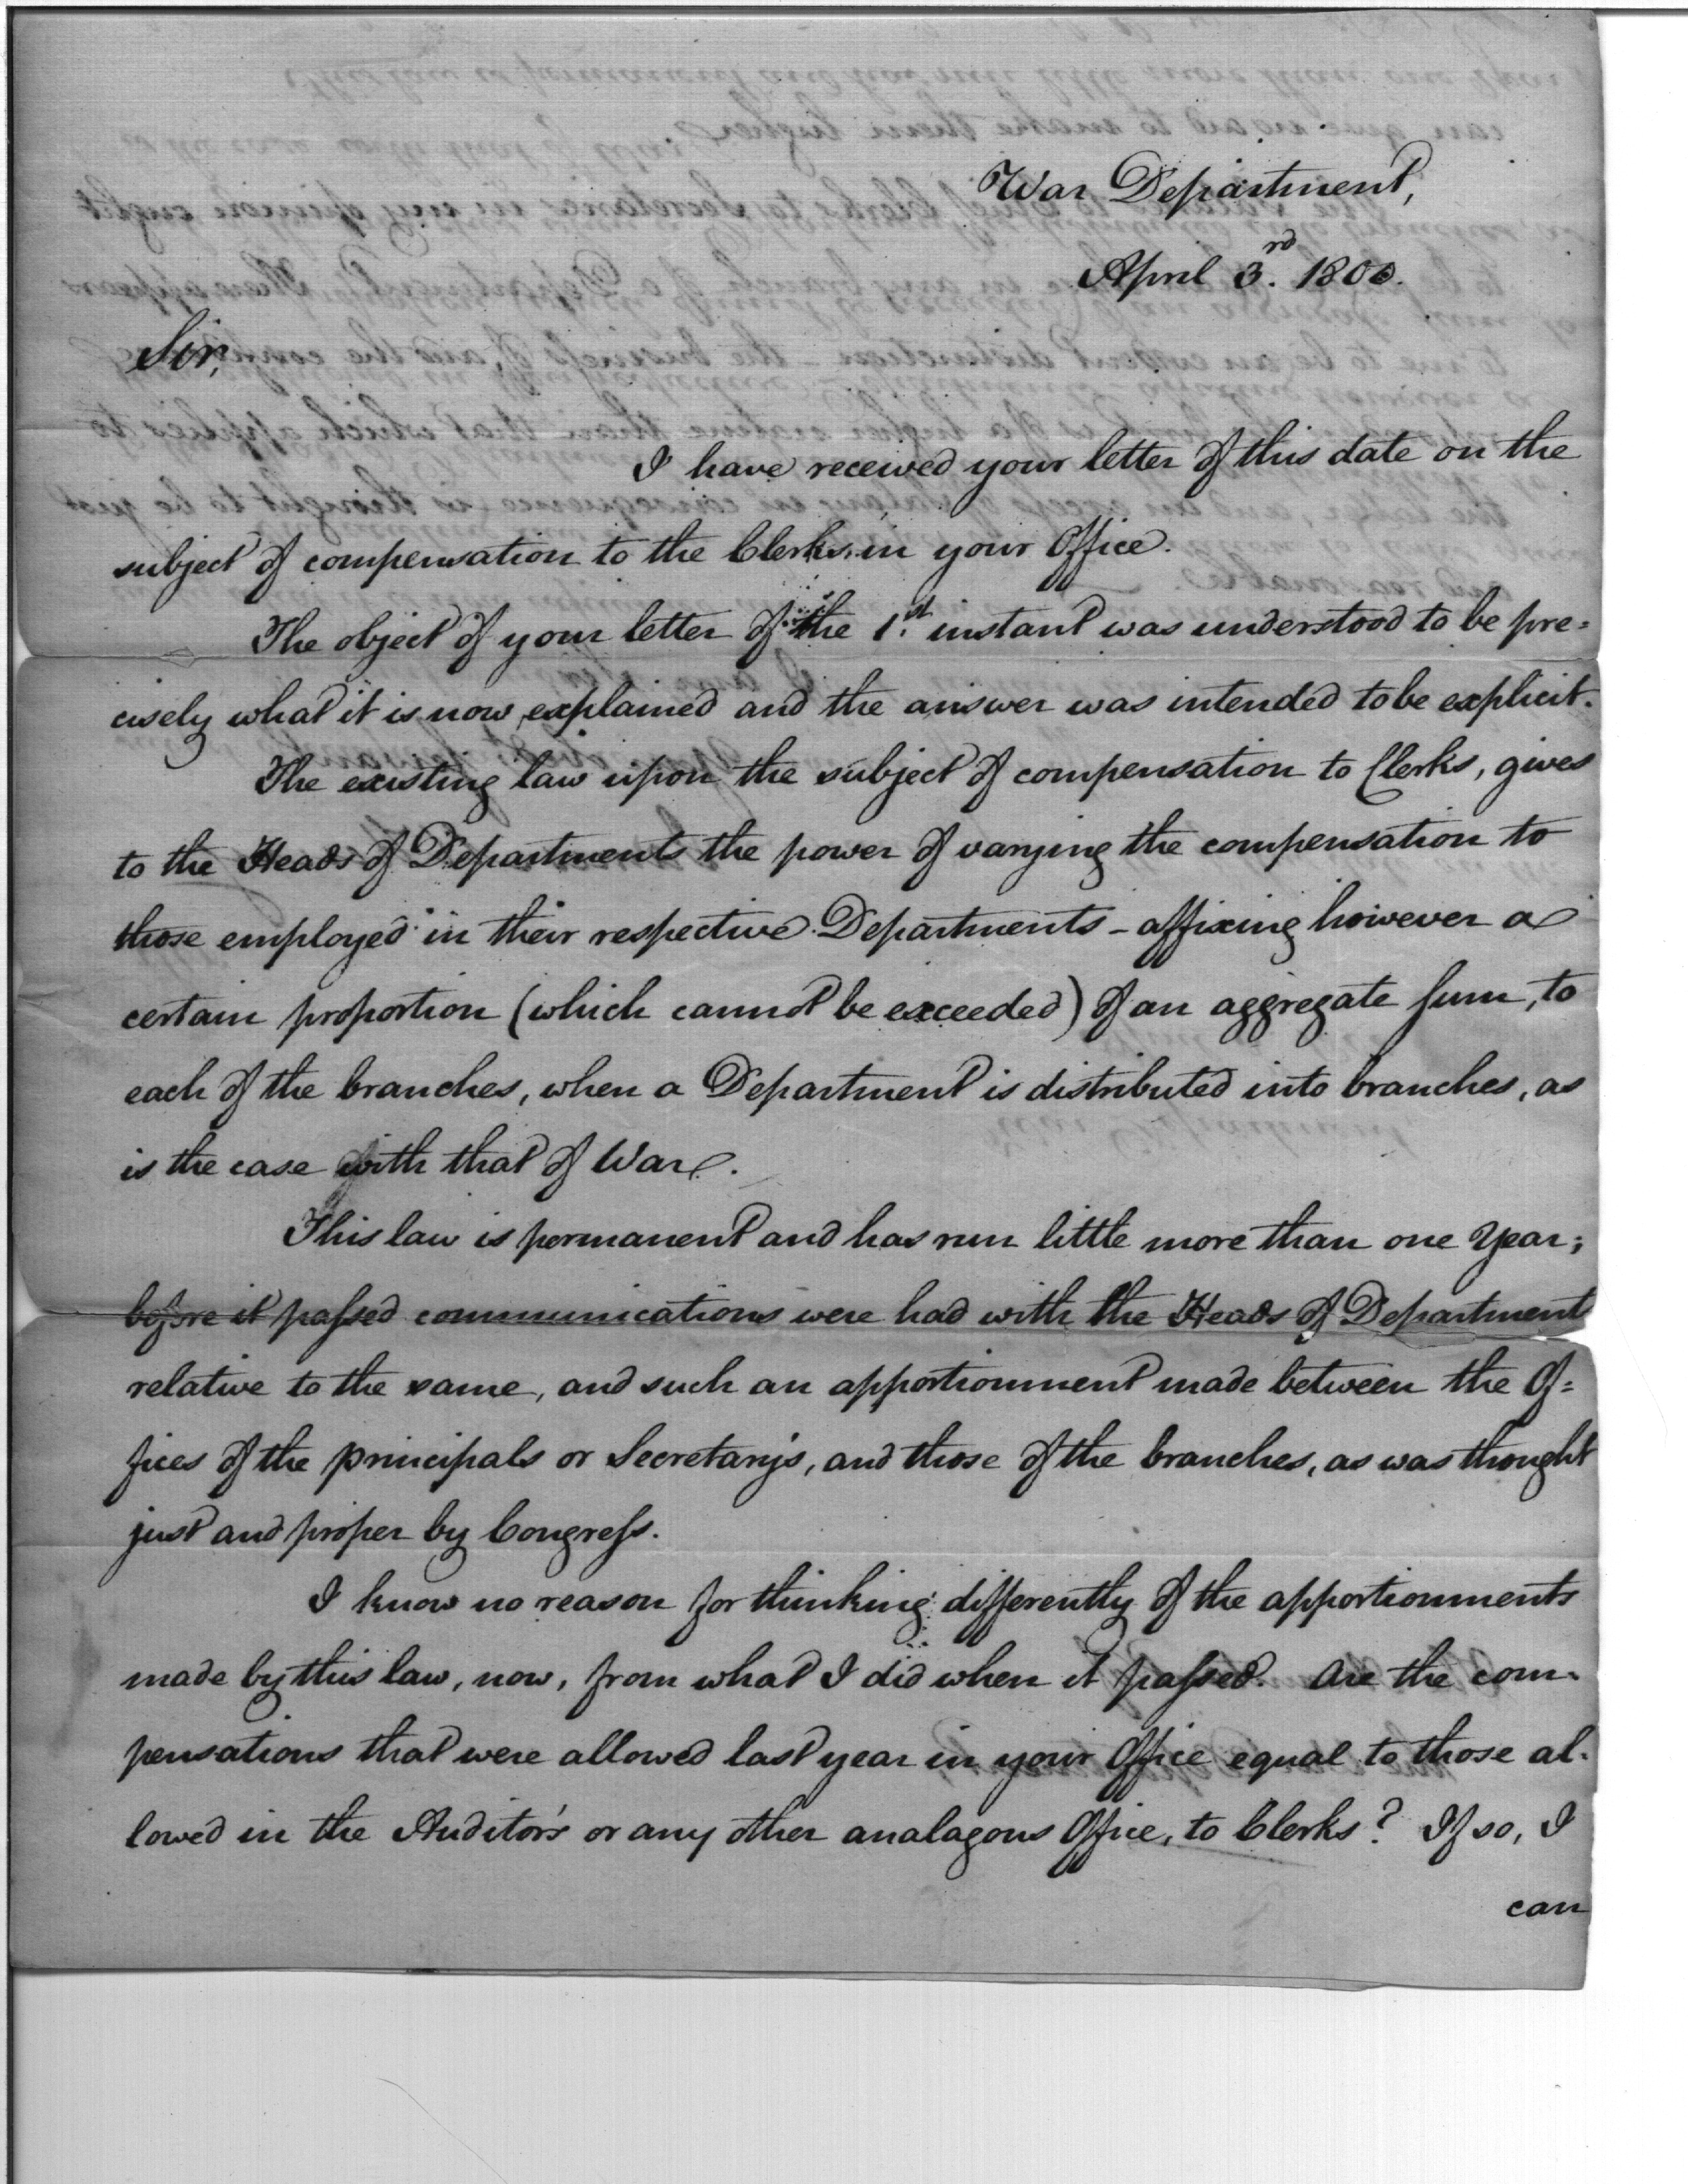 War Department,
April 3rd. 1800.
Sir,
I have received your letter of this date on the
subject of compensation to the Clerks in your Office.
The object of your letter of the 1st. instant was understood to be pre=
cisely what it is now explained and the answer was intended to be explicit.
The existing law upon the subject of compensation to Clerks, gives
to the Heads of Departments the power of varying the compensation to
those employed in their respective Departments - affixing however a
certain proportion (which cannot be exceeded) of an aggregate sum, to
each of the branches, when a Department is distributed into branches, as
is the case with that of War.
This law is permanent and has run little more than one Year;
before it passed communications were had with the Heads of Department
relative to the same, and such an apportionment made between the Of=
fices of the principals or Secretary's, and those of the branches, as was thought
just and proper by Congress.
I know no reason for thinking differently of the apportionments
made by this law, now, from what I did when it passed. Are the com-
pensations that were allowed last year in your Office equal to those al-
lowed in the Auditor's or any other analagous Office, to Clerks? If so, I
can